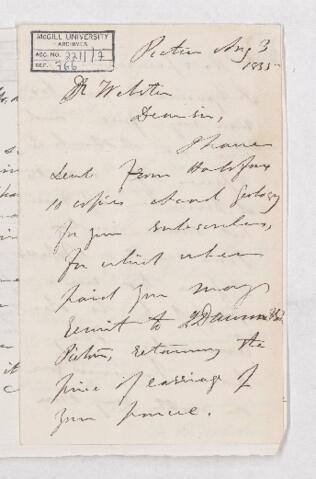 McGILL UNIVERSITY
ARCHIVES
ACC. NO. 2211/7
REF. 766
Pictou Aug 3
1855
Dr Webster
Dear sir,
I have
sent from Halifax
10 copies Acad Geology
for your subscribers,
for which when
paid you may
remit to J Dawson
Pictou, retaining the
price of carriage of
your parcel.